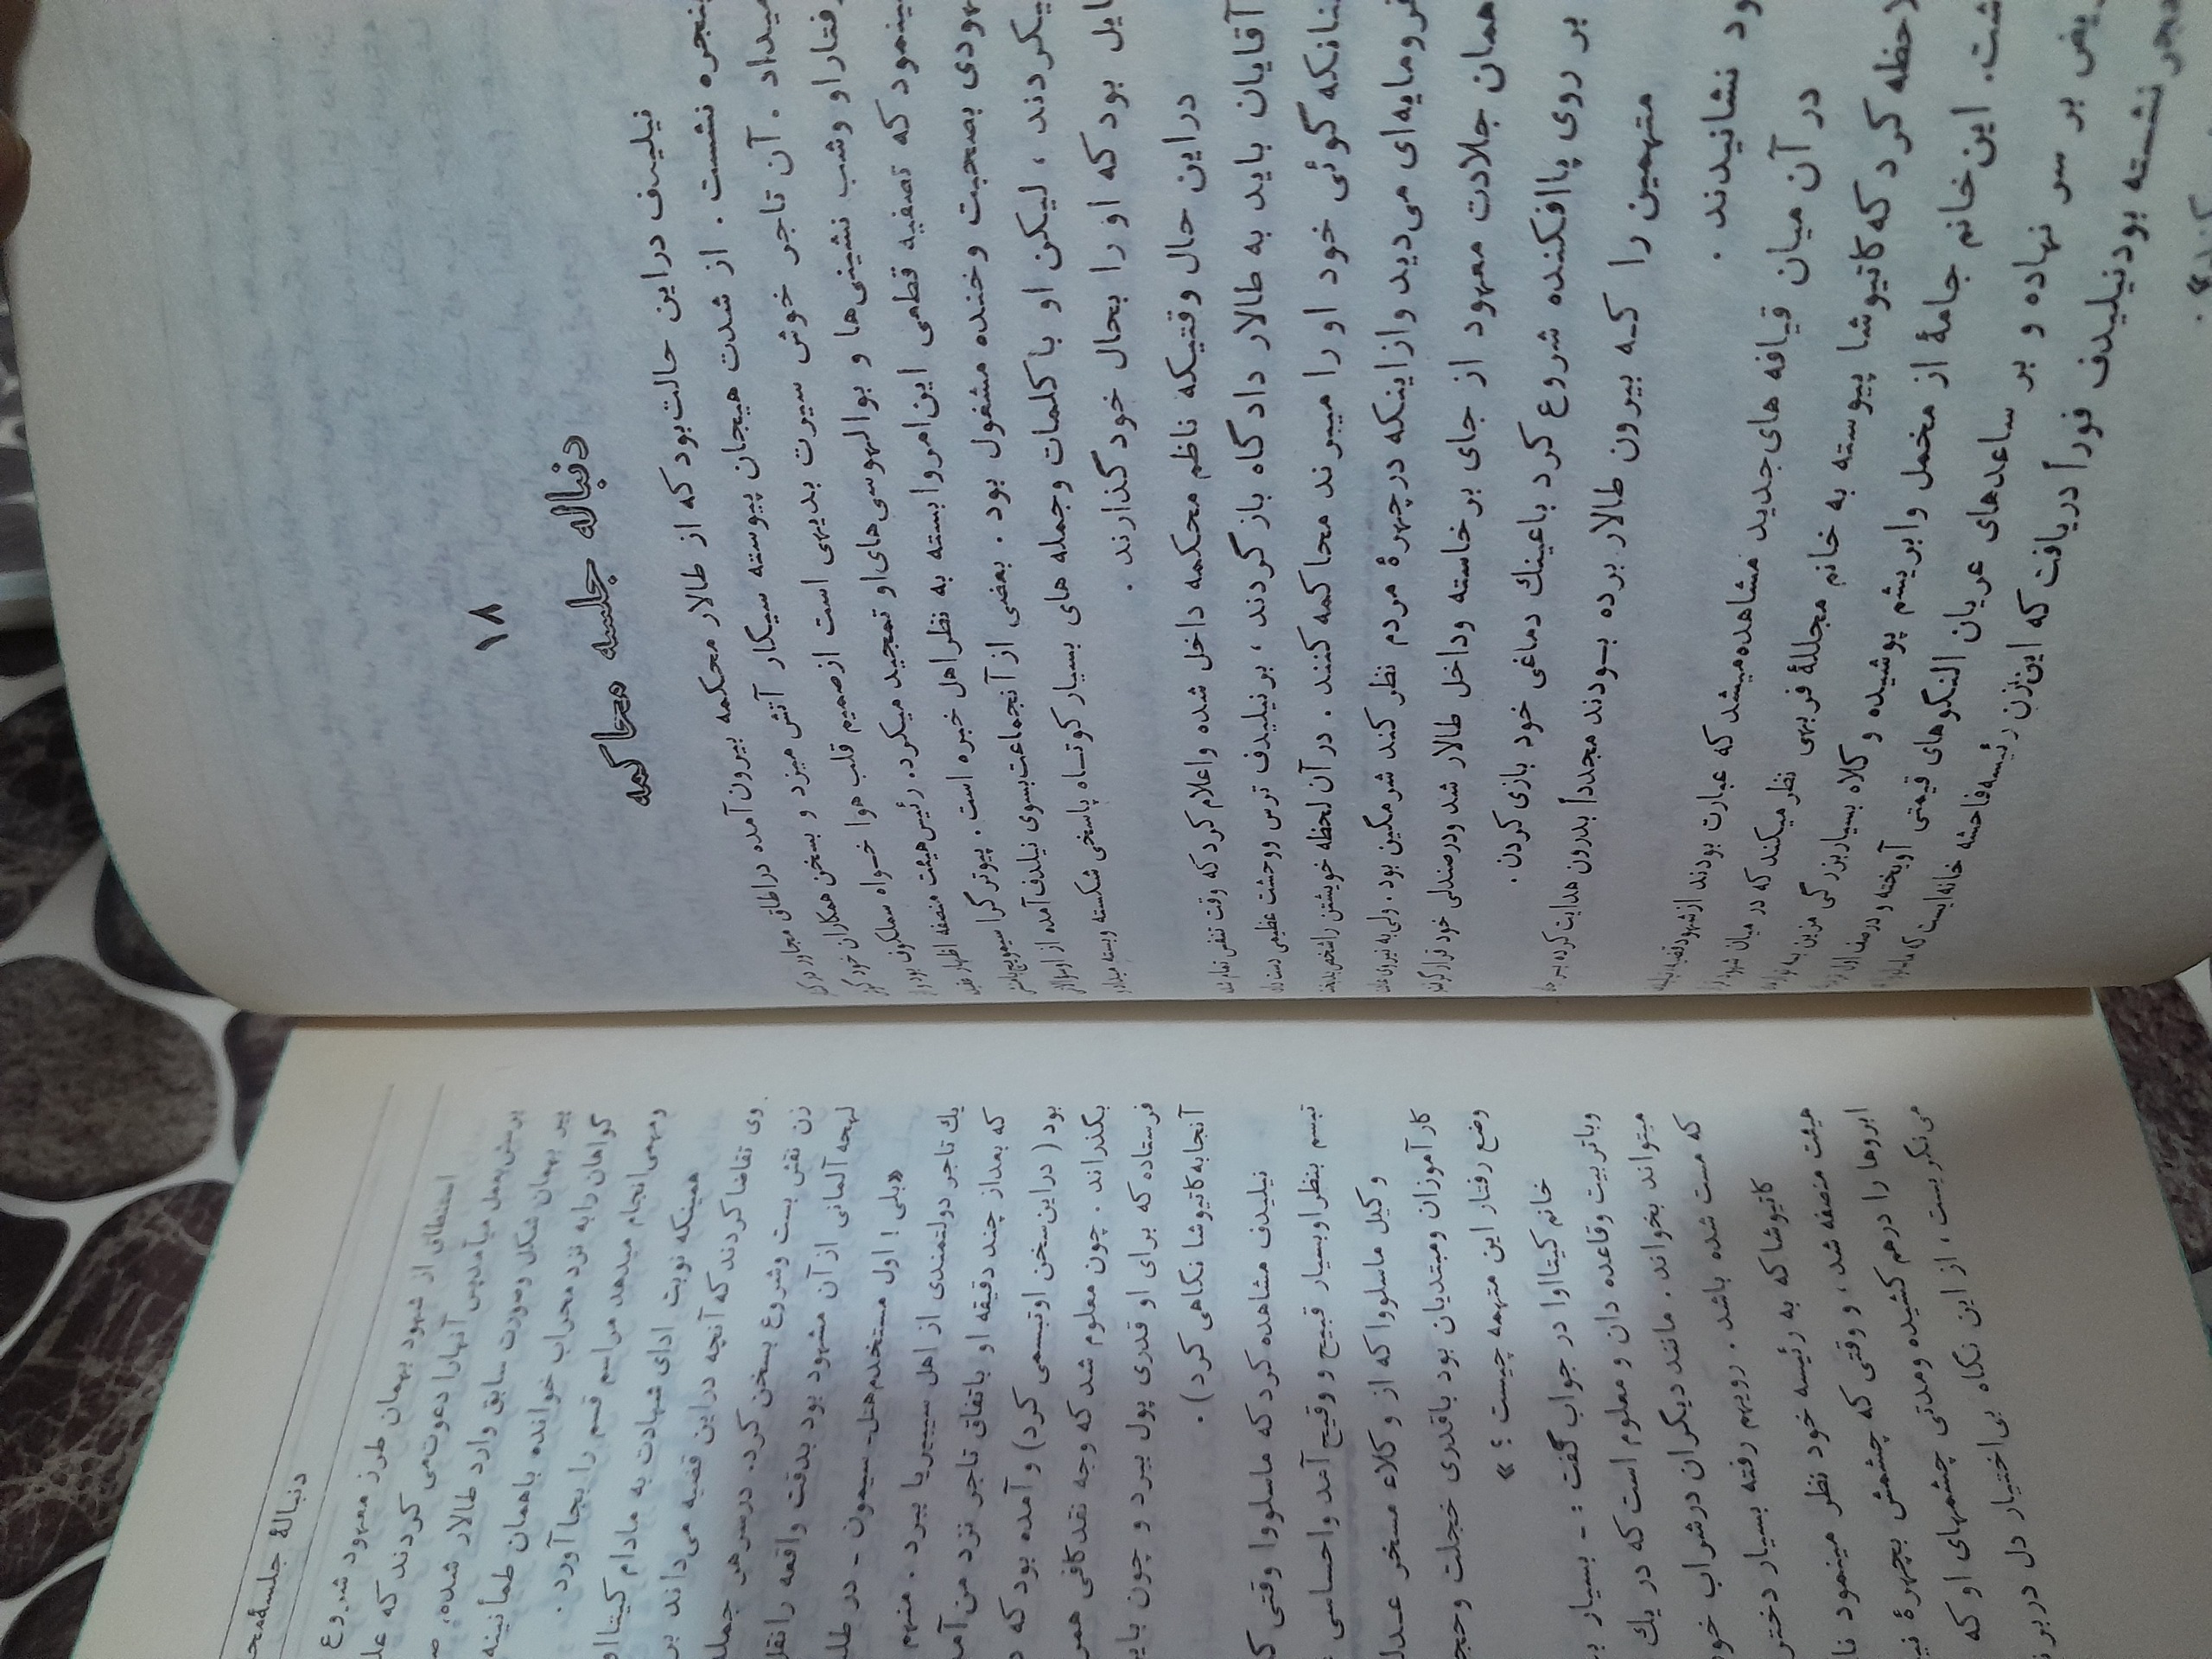 ۱۸
دنباله جلسه محاکمه
نیلیدف دراین حالت بود که از طالار محکمه بیرون آمده دراطاق مجاور
پنجره نشست . از شدت هیجان پیوسته سیگار آتش میزد و بسخن همکاران خود گوش
میداد . آن تاجر خوش سیرت بدیهی است ازصمیم قلب هوا خواه سملکوف بود و
رفتار او وشب نشینی‌ها و بوالهوسی‌های او تمجید میکرد. رئیس هیئت منصفه اظهار عقیده
مینمود که تصفیه قطعی این امر وابسته به نظر اهل خبره است . پیوتر گراسیموویچ با منشی
یهودی بصحبت وخنده مشغول بود . بعضی از آنجماعت بسوی نیلیدف آمده از او سؤالاتی
میکردند ، لیکن او با کلمات وجمله های بسیار کوتاه پاسخی شکسته وبسته میداد و
مایل بود که او را بحال خود گذارند .
دراین حال وقتیکه ناظم محکمه داخل شده واعلام کرد که وقت تنفس تمام شد
آقایان باید به طالار دادگاه باز گردند ، بر نیلیدف ترس ووحشت عظیمی دست داد
چنانکه گوئی خود او را میبرند محاکمه کنند . درآن لحظه خویشتن را شخص پلید
فرومایه‌ای می‌دید وازاینکه درچهرهٔ مردم نظر کند شرمگین بود . ولی به نیروی عادت
همان جلادت معهود از جای برخاسته وداخل طالار شد ودرصندلی خود قرار گرفته
بر روی پا افکنده شروع کرد باعینك دماغی خود بازی کردن.
متهمین را که بیرون طالار برده بودند مجدداً بدرون هدایت کرده بر جای
خود نشانیدند .
در آن میان قیافه های جدید مشاهده میشد که عبارت بودند ازشهود قضیه. نیلیدف
ملاحظه کرد که کاتیوشا پیوسته به خانم مجللهٔ فربهی نظر میکند که در میان شهود
داشت. این خانم جامهٔ از مخمل وابریشم پوشیده و کلاه بسیار بزرگی مزین به نوار
عریض بر سر نهاده و بر ساعدهای عریان النگوهای قیمتی آویخته و در صف اول
محجر نشسته بود نیلیدف فوراً دریافت که این زن رئیسه فاحشه خانه ایست که ماسلووا
دنبالهٔ جلسهٔ
استنطاق از شهود بهمان طرز معهود شروع
پرسش بعمل میآمد پس آنهارا دعوت می کردند که
پیر بهمان شکل وصورت سابق وارد طالار شده،
گواهان را به نزد محراب خوانده باهمان طمأنینه
ومهمی انجام میدهد مراسم قسم را بجا آورد .
همینکه نوبت ادای شهادت به مادام کیتااوا
وی تقاضا کردند که آنچه دراین قضیه می‌داند
زن نقش بست وشروع بسخن کرد. درسر هر
لهجه آلمانی از آن مشهود بود بدقت واقعه را
«بلی ! اول مستخدم هتل-سیمون- در
یك تاجر دولتمندی از اهل سیبریا ببرد . منهم
که بعداز چند دقیقه او باتفاق تاجر نزد من
بود( دراین سخن اوتبسمی کرد) و آمده بود که
بگذراند . چون معلوم شد که وجه نقد کافی
فرستاده که برای او قدری پول ببرد و چون
آنجا به کاتیوشا نگاهی کرد) .
نیلیدف مشاهده کرد که ماسلووا وقتی
تبسم بنظر او بسیار قبیح و وقیح آمد واحساسی
وکیل ماسلووا که از وکلاء مسخر
کار آموزان ومبتدیان بود باقدری خجلت
وضع رفتار این متهمه چیست ؟»
خانم کیتااوا در جواب گفت : - بسیار
وباتربیت وقاعده دان و معلوم است که در یك
میتواند بخواند . مانند دیگران درشراب
که مست شده باشد . رویهم رفته بسیار دختر
کاتیوشا که به رئیسه خود نظر مینمود
هیئت منصفه شد، و وقتی که چشمش بچهرهٔ
ابروها را درهم کشیده ومدتی چشمهای او که
می نگریست ، از این نگاه بی اختیار دل